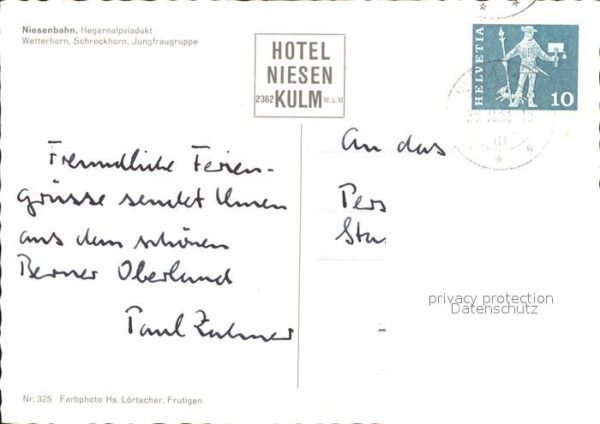 Niesenbahn, Hegernalpviadukt
Wetterhorn, Schreckhorn, Jungfraugruppe
HOTEL
NIESEN
2362 KULM M.ü.M
HELVETIA
10
Freundliche Ferien-
grüsse sendet Ihnen
aus dem schönen
Berner Oberland
Paul
An das
Pers
Sta
privacy protection
Datenschutz
Nr. 325 Farbphoto Hs. Lörtscher, Frutigen